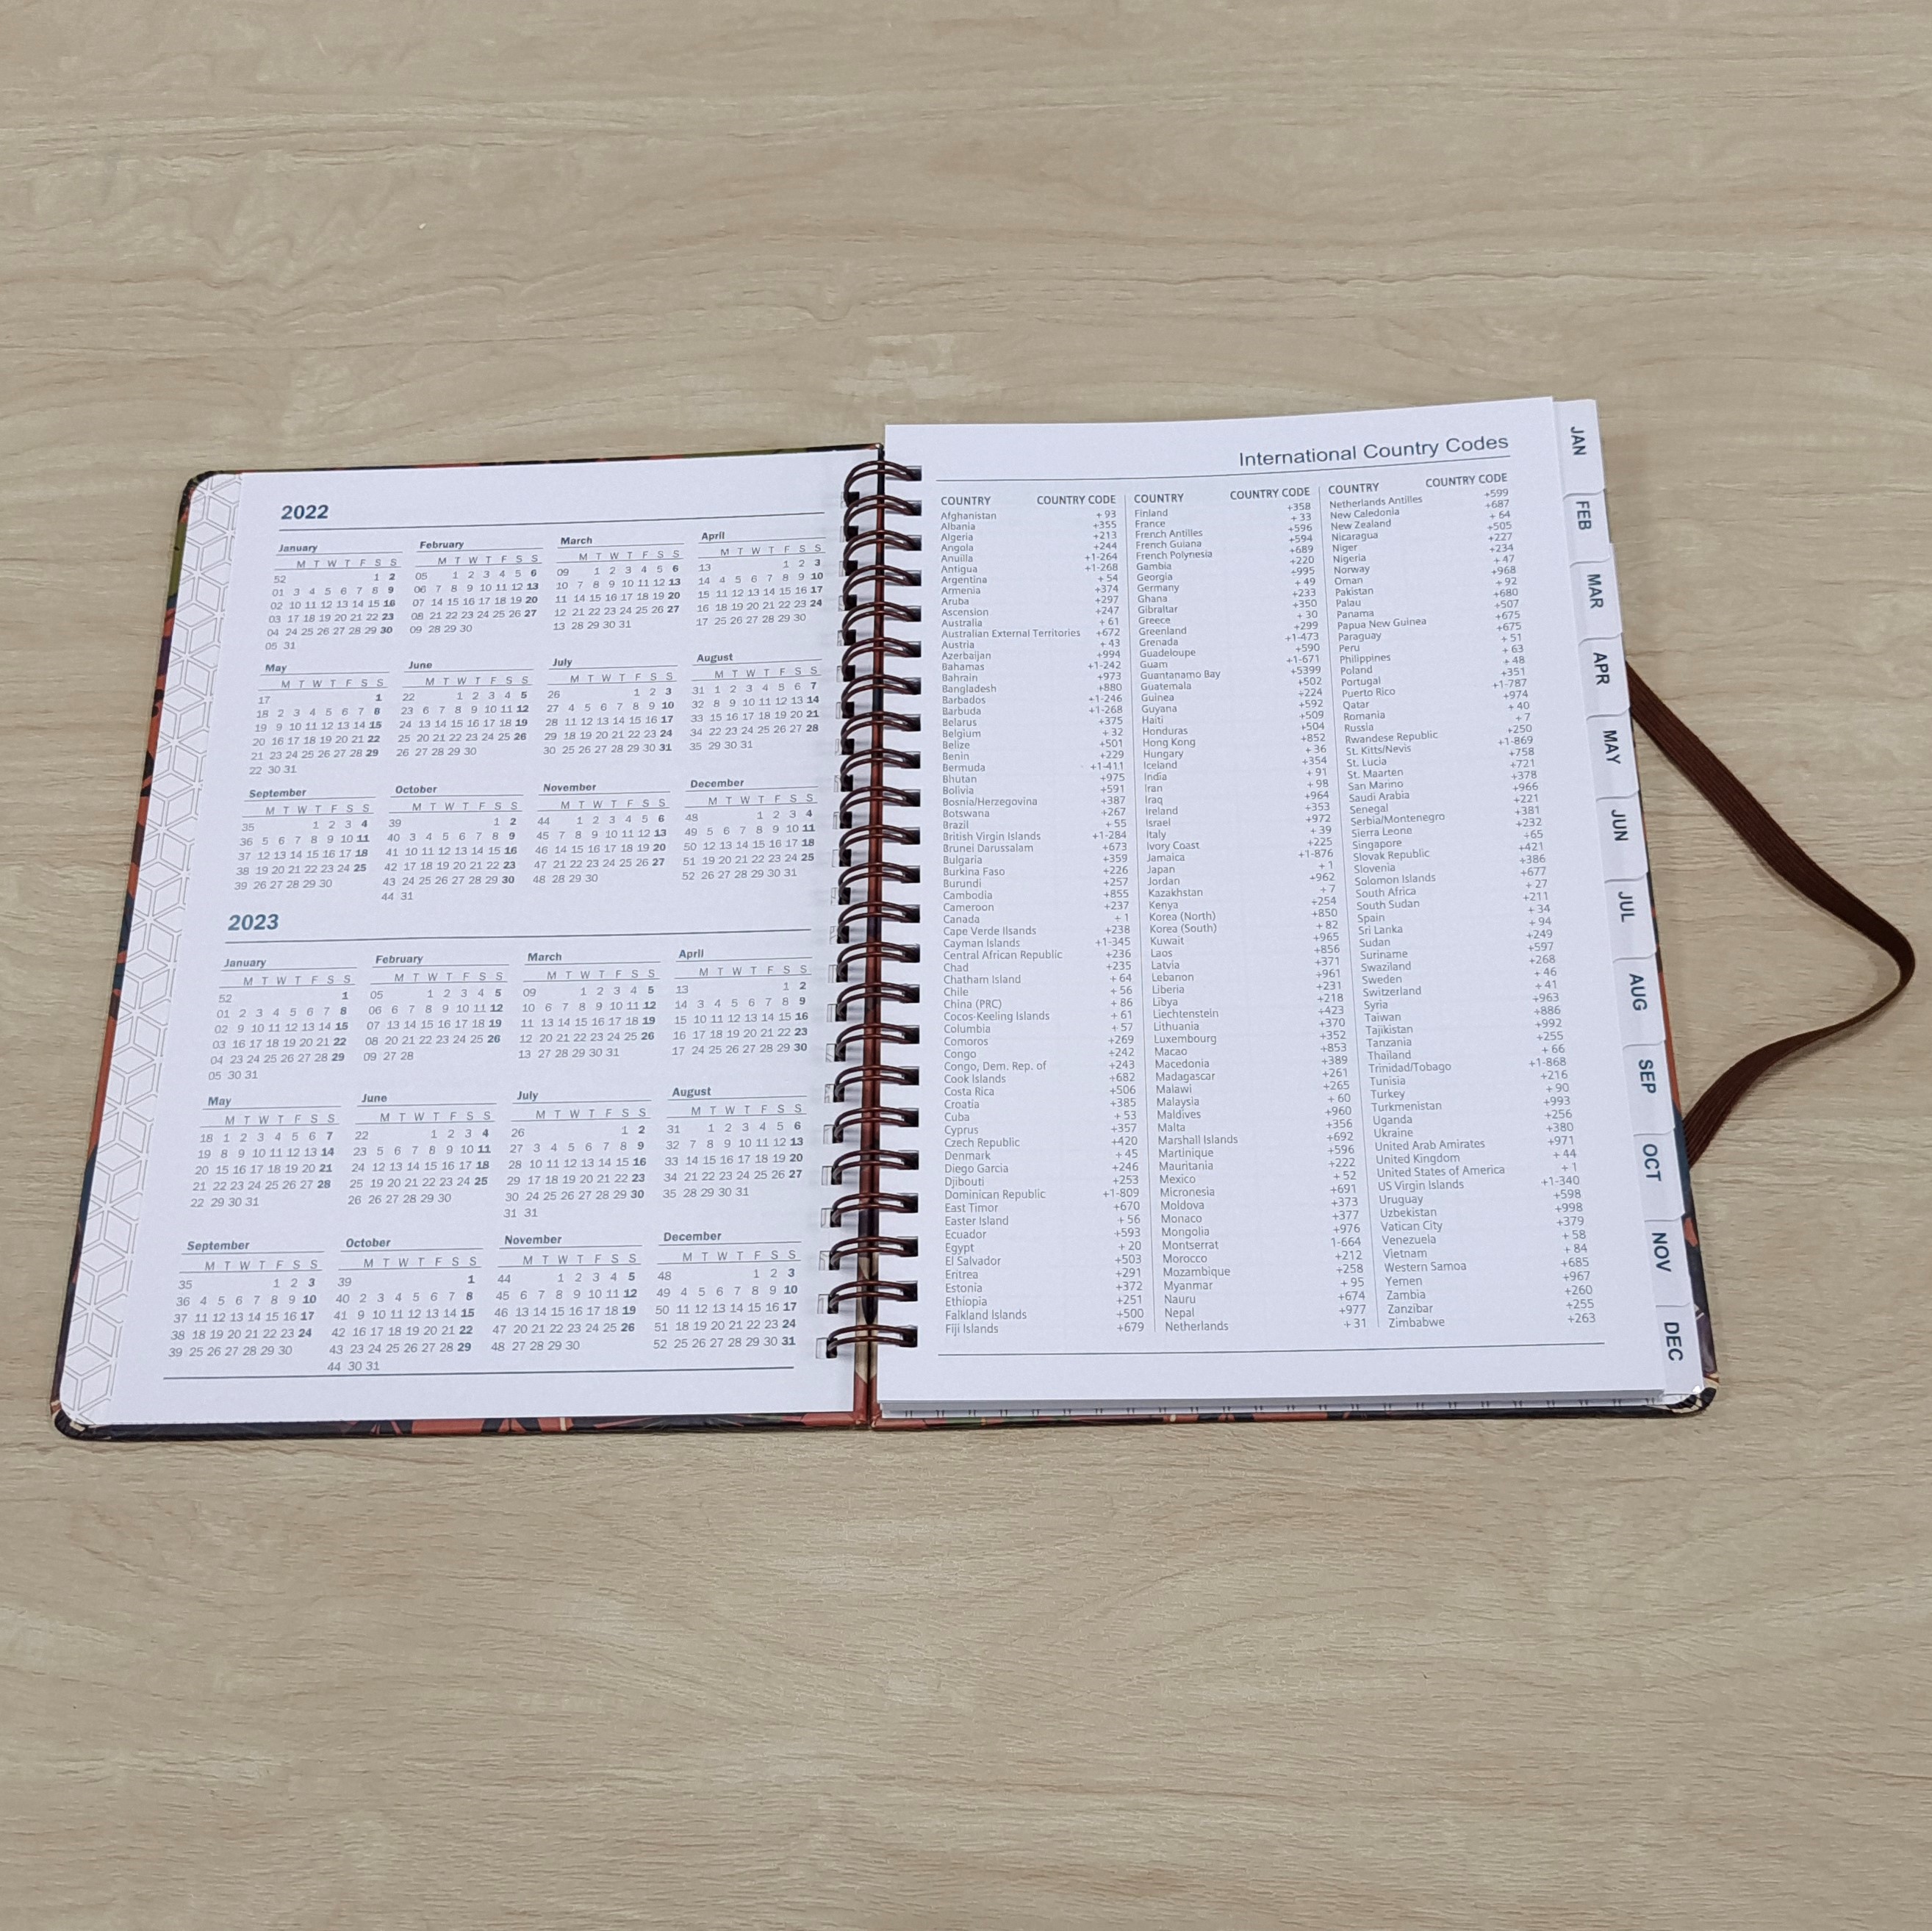 2022
January
M T W T F S S
52 1 2
01 3 4 5 6 7 8 9
02 10 11 12 13 14 15 16
03 17 18 19 20 21 22 23
04 24 25 26 27 28 29 30
05 31
February
M T W T F S S
05 1 2 3 4 5 6
06 7 8 9 10 11 12 13
07 14 15 16 17 18 19 20
08 21 22 23 24 25 26 27
09 28 29 30
March
M T W T F S S
09 1 2 3 4 5 6
10 7 8 9 10 11 12 13
11 14 15 16 17 18 19 20
12 21 22 23 24 25 26 27
13 28 29 30 31
April
M T W T F S S
13 1 2 3
14 4 5 6 7 8 9 10
15 11 12 13 14 15 16 17
16 18 19 20 21 22 23 24
17 25 26 27 28 29 30
May
M T W T F S S
17 1
18 2 3 4 5 6 7 8
19 9 10 11 12 13 14 15
20 16 17 18 19 20 21 22
21 23 24 25 26 27 28 29
22 30 31
June
M T W T F S S
22 1 2 3 4 5
23 6 7 8 9 10 11 12
24 13 14 15 16 17 18 19
25 20 21 22 23 24 25 26
26 27 28 29 30
July
M T W T F S S
26 1 2 3
27 4 5 6 7 8 9 10
28 11 12 13 14 15 16 17
29 18 19 20 21 22 23 24
30 25 26 27 28 29 30 31
August
M T W T F S S
31 1 2 3 4 5 6 7
32 8 9 10 11 12 13 14
33 15 16 17 18 19 20 21
34 22 23 24 25 26 27 28
35 29 30 31
September
M T W T F S S
35 1 2 3 4
36 5 6 7 8 9 10 11
37 12 13 14 15 16 17 18
38 19 20 21 22 23 24 25
39 26 27 28 29 30
October
M T W T F S S
39 1 2
40 3 4 5 6 7 8 9
41 10 11 12 13 14 15 16
42 17 18 19 20 21 22 23
43 24 25 26 27 28 29 30
44 31
November
M T W T F S S
44 1 2 3 4 5 6
45 7 8 9 10 11 12 13
46 14 15 16 17 18 19 20
47 21 22 23 24 25 26 27
48 28 29 30
December
M T W T F S S
48 1 2 3 4
49 5 6 7 8 9 10 11
50 12 13 14 15 16 17 18
51 19 20 21 22 23 24 25
52 26 27 28 29 30 31
2023
January
M T W T F S S
52 1
01 2 3 4 5 6 7 8
02 9 10 11 12 13 14 15
03 16 17 18 19 20 21 22
04 23 24 25 26 27 28 29
05 30 31
February
M T W T F S S
05 1 2 3 4 5
06 6 7 8 9 10 11 12
07 13 14 15 16 17 18 19
08 20 21 22 23 24 25 26
09 27 28
March
M T W T F S S
09 1 2 3 4 5
10 6 7 8 9 10 11 12
11 13 14 15 16 17 18 19
12 20 21 22 23 24 25 26
13 27 28 29 30 31
April
M T W T F S S
13 1 2
14 3 4 5 6 7 8 9
15 10 11 12 13 14 15 16
16 17 18 19 20 21 22 23
17 24 25 26 27 28 29 30
May
M T W T F S S
18 1 2 3 4 5 6 7
19 8 9 10 11 12 13 14
20 15 16 17 18 19 20 21
21 22 23 24 25 26 27 28
22 29 30 31
June
M T W T F S S
22 1 2 3 4
23 5 6 7 8 9 10 11
24 12 13 14 15 16 17 18
25 19 20 21 22 23 24 25
26 26 27 28 29 30
July
M T W T F S S
26 1 2
27 3 4 5 6 7 8 9
28 10 11 12 13 14 15 16
29 17 18 19 20 21 22 23
30 24 25 26 27 28 29 30
31 31
August
M T W T F S S
31 1 2 3 4 5 6
32 7 8 9 10 11 12 13
33 14 15 16 17 18 19 20
34 21 22 23 24 25 26 27
35 28 29 30 31
September
M T W T F S S
35 1 2 3
36 4 5 6 7 8 9 10
37 11 12 13 14 15 16 17
38 18 19 20 21 22 23 24
39 25 26 27 28 29 30
October
M T W T F S S
39 1
40 2 3 4 5 6 7 8
41 9 10 11 12 13 14 15
42 16 17 18 19 20 21 22
43 23 24 25 26 27 28 29
44 30 31
November
M T W T F S S
44 1 2 3 4 5
45 6 7 8 9 10 11 12
46 13 14 15 16 17 18 19
47 20 21 22 23 24 25 26
48 27 28 29 30
December
M T W T F S S
48 1 2 3
49 4 5 6 7 8 9 10
50 11 12 13 14 15 16 17
51 18 19 20 21 22 23 24
52 25 26 27 28 29 30 31
International Country Codes
COUNTRY COUNTRY CODE
Afghanistan + 93
Albania +355
Algeria +213
Angola +244
Anuilla +1-264
Antigua +1-268
Argentina + 54
Armenia +374
Aruba +297
Ascension +247
Australia + 61
Australian External Territories +672
Austria + 43
Azerbaijan +994
Bahamas +1-242
Bahrain +973
Bangladesh +880
Barbados +1-246
Barbuda +1-268
Belarus +375
Belgium + 32
Belize +501
Benin +229
Bermuda +1-411
Bhutan +975
Bolivia +591
Bosnia/Herzegovina +387
Botswana +267
Brazil + 55
British Virgin Islands +1-284
Brunei Darussalam +673
Bulgaria +359
Burkina Faso +226
Burundi +257
Cambodia +855
Cameroon +237
Canada + 1
Cape Verde Ilsands +238
Cayman Islands +1-345
Central African Republic +236
Chad +235
Chatham Island + 64
Chile + 56
China (PRC) + 86
Cocos-Keeling Islands + 61
Columbia + 57
Comoros +269
Congo +242
Congo, Dem. Rep. of +243
Cook Islands +682
Costa Rica +506
Croatia +385
Cuba + 53
Cyprus +357
Czech Republic +420
Denmark + 45
Diego Garcia +246
Djibouti +253
Dominican Republic +1-809
East Timor +670
Easter Island + 56
Ecuador +593
Egypt + 20
El Salvador +503
Eritrea +291
Estonia +372
Ethiopia +251
Falkland Islands +500
Fiji Islands +679
COUNTRY COUNTRY CODE
Finland +358
France + 33
French Antilles +596
French Guiana +594
French Polynesia +689
Gambia +220
Georgia +995
Germany + 49
Ghana +233
Gibraltar +350
Greece + 30
Greenland +299
Grenada +1-473
Guadeloupe +590
Guam +1-671
Guantanamo Bay +5399
Guatemala +502
Guinea +224
Guyana +592
Haiti +509
Honduras +504
Hong Kong +852
Hungary + 36
Iceland +354
India + 91
Iran + 98
Iraq +964
Ireland +353
Israel +972
Italy + 39
Ivory Coast +225
Jamaica +1-876
Japan + 1
Jordan +962
Kazakhstan + 7
Kenya +254
Korea (North) +850
Korea (South) + 82
Kuwait +965
Laos +856
Latvia +371
Lebanon +961
Liberia +231
Libya +218
Liechtenstein +423
Lithuania +370
Luxembourg +352
Macao +853
Macedonia +389
Madagascar +261
Malawi +265
Malaysia + 60
Maldives +960
Malta +356
Marshall Islands +692
Martinique +596
Mauritania +222
Mexico + 52
Micronesia +691
Moldova +373
Monaco +377
Mongolia +976
Montserrat 1-664
Morocco +212
Mozambique +258
Myanmar + 95
Nauru +674
Nepal +977
Netherlands + 31
COUNTRY COUNTRY CODE
Netherlands Antilles +599
New Caledonia +687
New Zealand + 64
Nicaragua +505
Niger +227
Nigeria +234
Norway + 47
Oman +968
Pakistan + 92
Palau +680
Panama +507
Papua New Guinea +675
Paraguay +675
Peru + 51
Philippines + 63
Poland + 48
Portugal +351
Puerto Rico +1-787
Qatar +974
Romania + 40
Russia + 7
Rwandese Republic +250
St. Kitts/Nevis +1-869
St. Lucia +758
St. Maarten +721
San Marino +378
Saudi Arabia +966
Senegal +221
Serbia/Montenegro +381
Sierra Leone +232
Singapore +65
Slovak Republic +421
Slovenia +386
Solomon Islands +677
South Africa + 27
South Sudan +211
Spain + 34
Sri Lanka + 94
Sudan +249
Suriname +597
Swaziland +268
Sweden + 46
Switzerland + 41
Syria +963
Taiwan +886
Tajikistan +992
Tanzania +255
Thailand + 66
Trinidad/Tobago +1-868
Tunisia +216
Turkey + 90
Turkmenistan +993
Uganda +256
Ukraine +380
United Arab Amirates +971
United Kingdom + 44
United States of America + 1
US Virgin Islands +1-340
Uruguay +598
Uzbekistan +998
Vatican City +379
Venezuela + 58
Vietnam + 84
Western Samoa +685
Yemen +967
Zambia +260
Zanzibar +255
Zimbabwe +263
JAN
FEB
MAR
APR
MAY
JUN
JUL
AUG
SEP
OCT
NOV
DEC